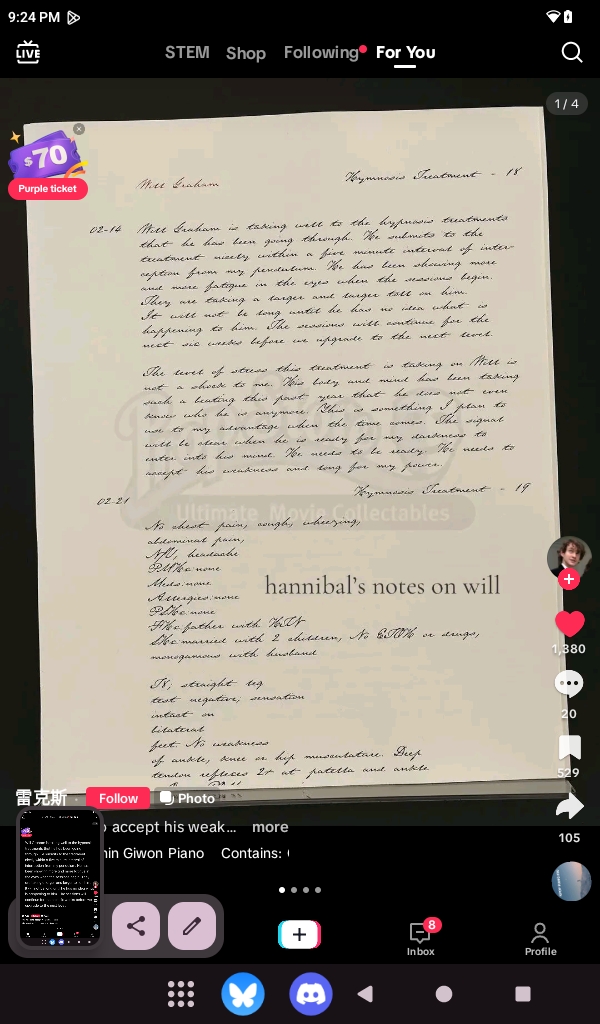 9:24 PM
LIVE
STEM
Shop
Following
For You
1 / 4
$70
Purple ticket
Will Graham
Hymnosis Treatment - 18
02-14
Will Graham is taking well to the hypnosis treatments
that he has been going through. He submits to the
treatment nicely within a five minute interval of inter-
ception from my pendulum. He has been showing more
and more fatigue in the eyes when the sessions begin.
They are taking a larger and larger toll on him.
It will not be long until he has no idea what is
happening to him. The sessions will continue for the
next six weeks before we upgrade to the next level.
The level of stress this treatment is taking on Will is
not a shock to me. His body and mind has been taking
such a beating this past year that he does not even
know who he is anymore. This is something I plan to
use to my advantage when the time comes. The signal
will be clear when he is ready for my darkness to
enter into his mind. He needs to be ready. He needs to
accept his weakness and long for my power.
Ultimate Movie Collectables
02-21
Hymnosis Treatment - 19
No chest pain, cough, wheezing,
abdominal pain,
N/V, headache
PMHx:none
Meds:none
Allergies:none
PSHx:none
FHx:father with HTN
SHx:married with 2 children, No ETOH or drugs,
monogamous with husband
hannibal's notes on will
T8; straight leg
test negative; sensation
intact on
bilateral
feet. No weakness
of ankle, knee or hip musculature. Deep
tendon reflexes 2+ at patella and ankle
1,380
20
529
105
雷克斯 · Follow Photo
o accept his weak... more
hin Giwon Piano Contains: (
Inbox
8
Profile